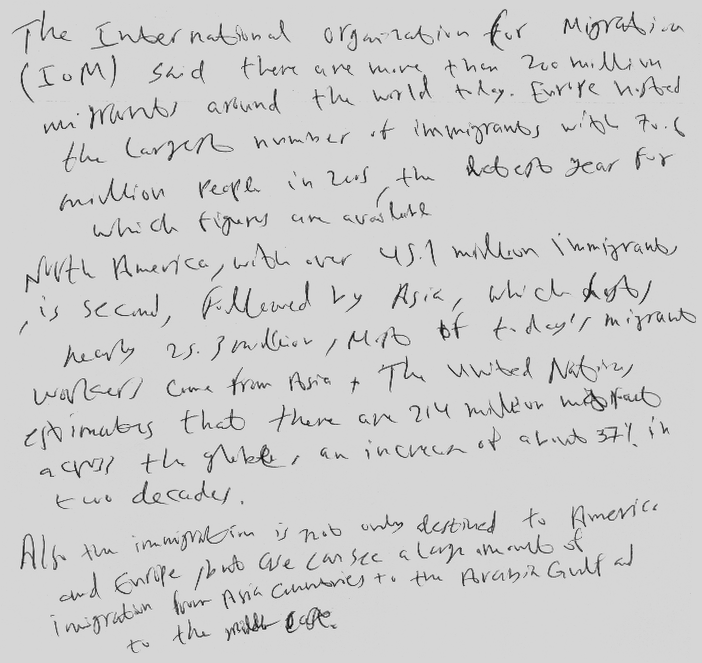 The International organization for Migration
(IOM) said there are more than 200 million
migrants around the world today. Europe hosted
the largest number of immigrants with 70.6
million people in 2005, the latest year for
which figures are available
North America, with over 45.1 million immigrants
, is second, followed by Asia, which hosts,
nearly 25.3 million, Most of today's migrant
workers come from Asia. The United Nations,
estimates that there are 214 million
across the globe, an increase of about 37% in
two decades.
Also the immigration is not only destined to America
and Europe, but we can see a large amount of
imigration from Asia countries to the Arabia Gulf ad
to the middle east.